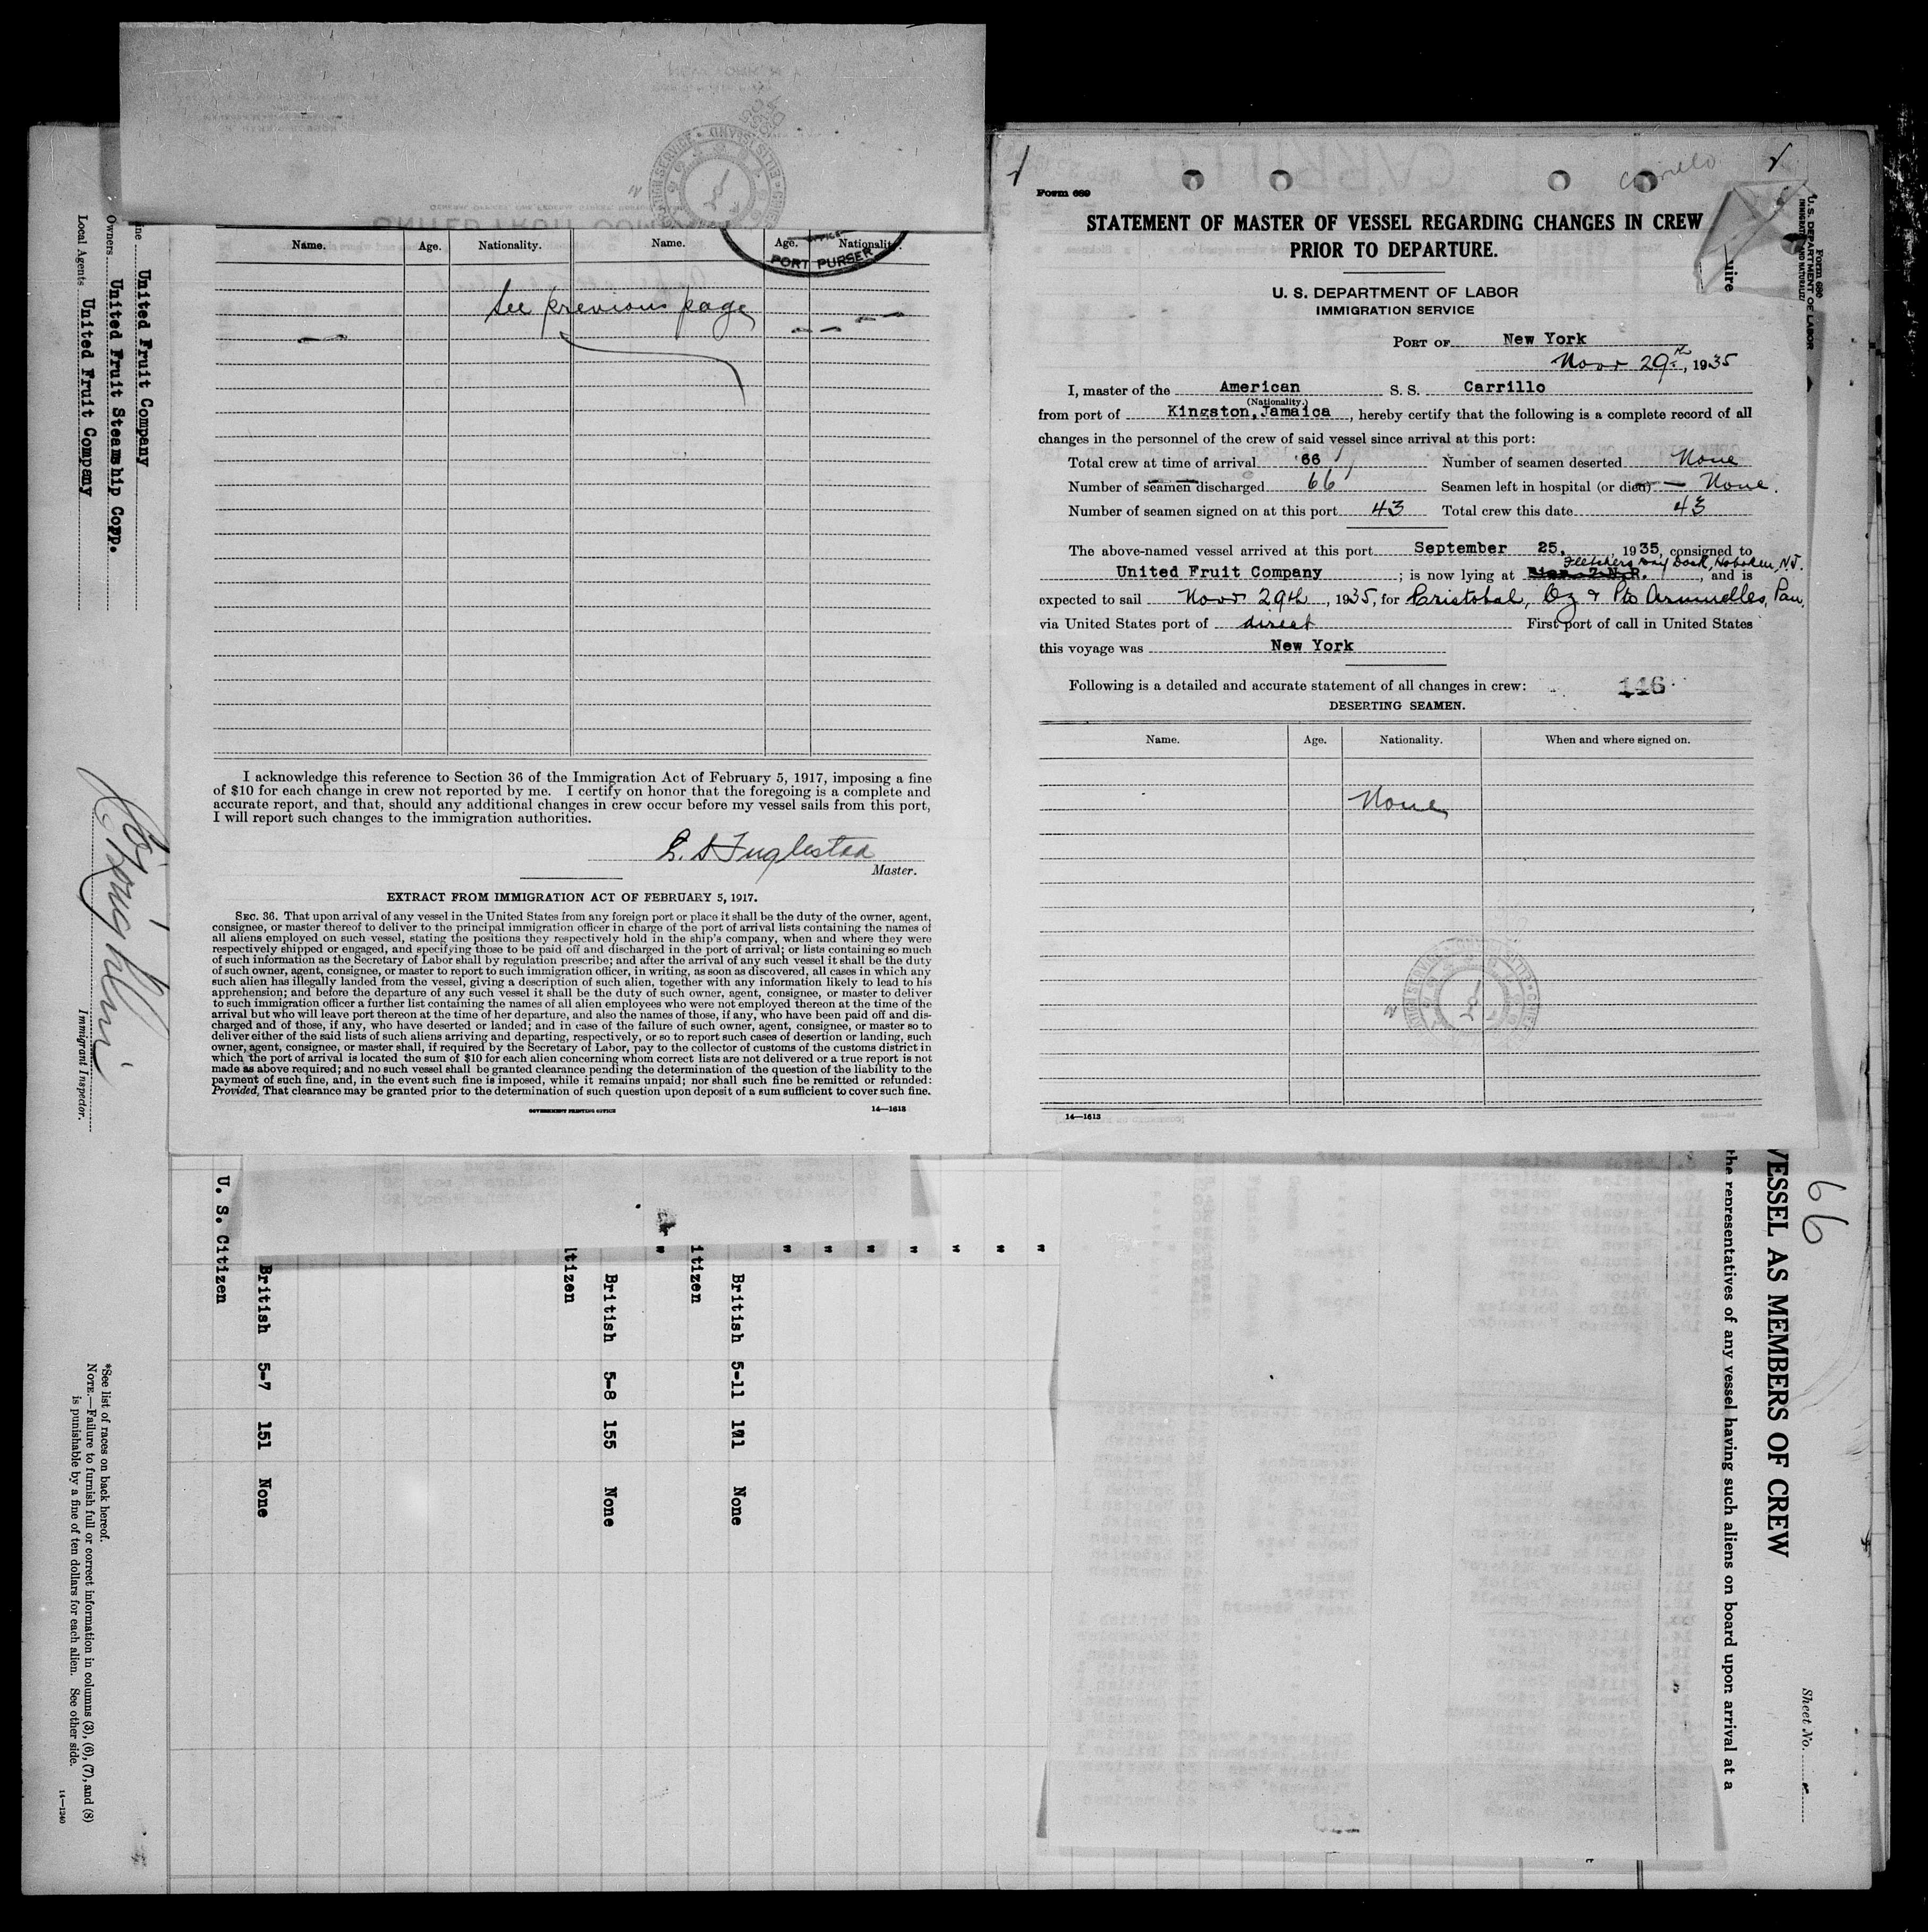 Name. Age. Nationality. Name. Age. Nationality.
OFFICE
PORT PURSER
See previous page
I acknowledge this reference to Section 36 of the Immigration Act of February 5, 1917, imposing a fine
of $10 for each change in crew not reported by me. I certify on honor that the foregoing is a complete and
accurate report, and that, should any additional changes in crew occur before my vessel sails from this port,
I will report such changes to the immigration authorities.
Master.
EXTRACT FROM IMMIGRATION ACT OF FEBRUARY 5, 1917.
SEC. 36. That upon arrival of any vessel in the United States from any foreign port or place it shall be the duty of the owner, agent,
consignee, or master thereof to deliver to the principal immigration officer in charge of the port of arrival lists containing the names of
all aliens employed on such vessel, stating the positions they respectively hold in the ship's company, when and where they were
respectively shipped or engaged, and specifying those to be paid off and discharged in the port of arrival; or lists containing so much
of such information as the Secretary of Labor shall by regulation prescribe; and after the arrival of any such vessel it shall be the duty
of such owner, agent, consignee, or master to report to such immigration officer, in writing, as soon as discovered, all cases in which any
such alien has illegally landed from the vessel, giving a description of such alien, together with any information likely to lead to his
apprehension; and before the departure of any such vessel it shall be the duty of such owner, agent, consignee, or master to deliver
to such immigration officer a further list containing the names of all alien employees who were not employed thereon at the time of the
arrival but who will leave port thereon at the time of her departure, and also the names of those, if any, who have been paid off and dis-
charged and of those, if any, who have deserted or landed; and in case of the failure of such owner, agent, consignee, or master so to
deliver either of the said lists of such aliens arriving and departing, respectively, or so to report such cases of desertion or landing, such
owner, agent, consignee, or master shall, if required by the Secretary of Labor, pay to the collector of customs of the customs district in
which the port of arrival is located the sum of $10 for each alien concerning whom correct lists are not delivered or a true report is not
made as above required; and no such vessel shall be granted clearance pending the determination of the question of the liability to the
payment of such fine, and, in the event such fine is imposed, while it remains unpaid; nor shall such fine be remitted or refunded:
Provided, That clearance may be granted prior to the determination of such question upon deposit of a sum sufficient to cover such fine.
GOVERNMENT PRINTING OFFICE 14—1613
Carrillo
Form 689
STATEMENT OF MASTER OF VESSEL REGARDING CHANGES IN CREW
PRIOR TO DEPARTURE.
U. S. DEPARTMENT OF LABOR
IMMIGRATION SERVICE
PORT OF New York
Novr 29th, 1935
I, master of the American S. S. Carrillo
(Nationality.)
from port of Kingston, Jamaica, hereby certify that the following is a complete record of all
changes in the personnel of the crew of said vessel since arrival at this port:
Total crew at time of arrival 66 Number of seamen deserted None
Number of seamen discharged 66 Seamen left in hospital (or died) — None.
Number of seamen signed on at this port 43 Total crew this date 43
The above-named vessel arrived at this port September 25, 1935, consigned to
Fletchers Dry Dock, Hoboken, NJ.
United Fruit Company; is now lying at Pier 7 N.R., and is
expected to sail Novr 29th, 1935, for Cristobal, Cz & Pto Armuelles, Pan,
via United States port of direct First port of call in United States
this voyage was New York
Following is a detailed and accurate statement of all changes in crew: 146
DESERTING SEAMEN.
Name. Age. Nationality. When and where signed on.
None
14—1613
Form 680
U. S. DEPARTMENT OF LABOR
uire
VESSEL AS MEMBERS OF CREW
66
the representatives of any vessel having such aliens on board upon arrival at a
Sheet No.
British 5-11 171 None
itizen
"
British 5-8 155 None
itizen
British 5-7 151 None
U. S. Citizen
ine United Fruit Company
Owners United Fruit Steamship Copp.
Local Agents United Fruit Company
Immigrant Inspector.
*See list of races on back hereof.
NOTE.—Failure to furnish full or correct information in columns (3), (6), (7), and (8)
is punishable by a fine of ten dollars for each alien. See other side.
14—1240